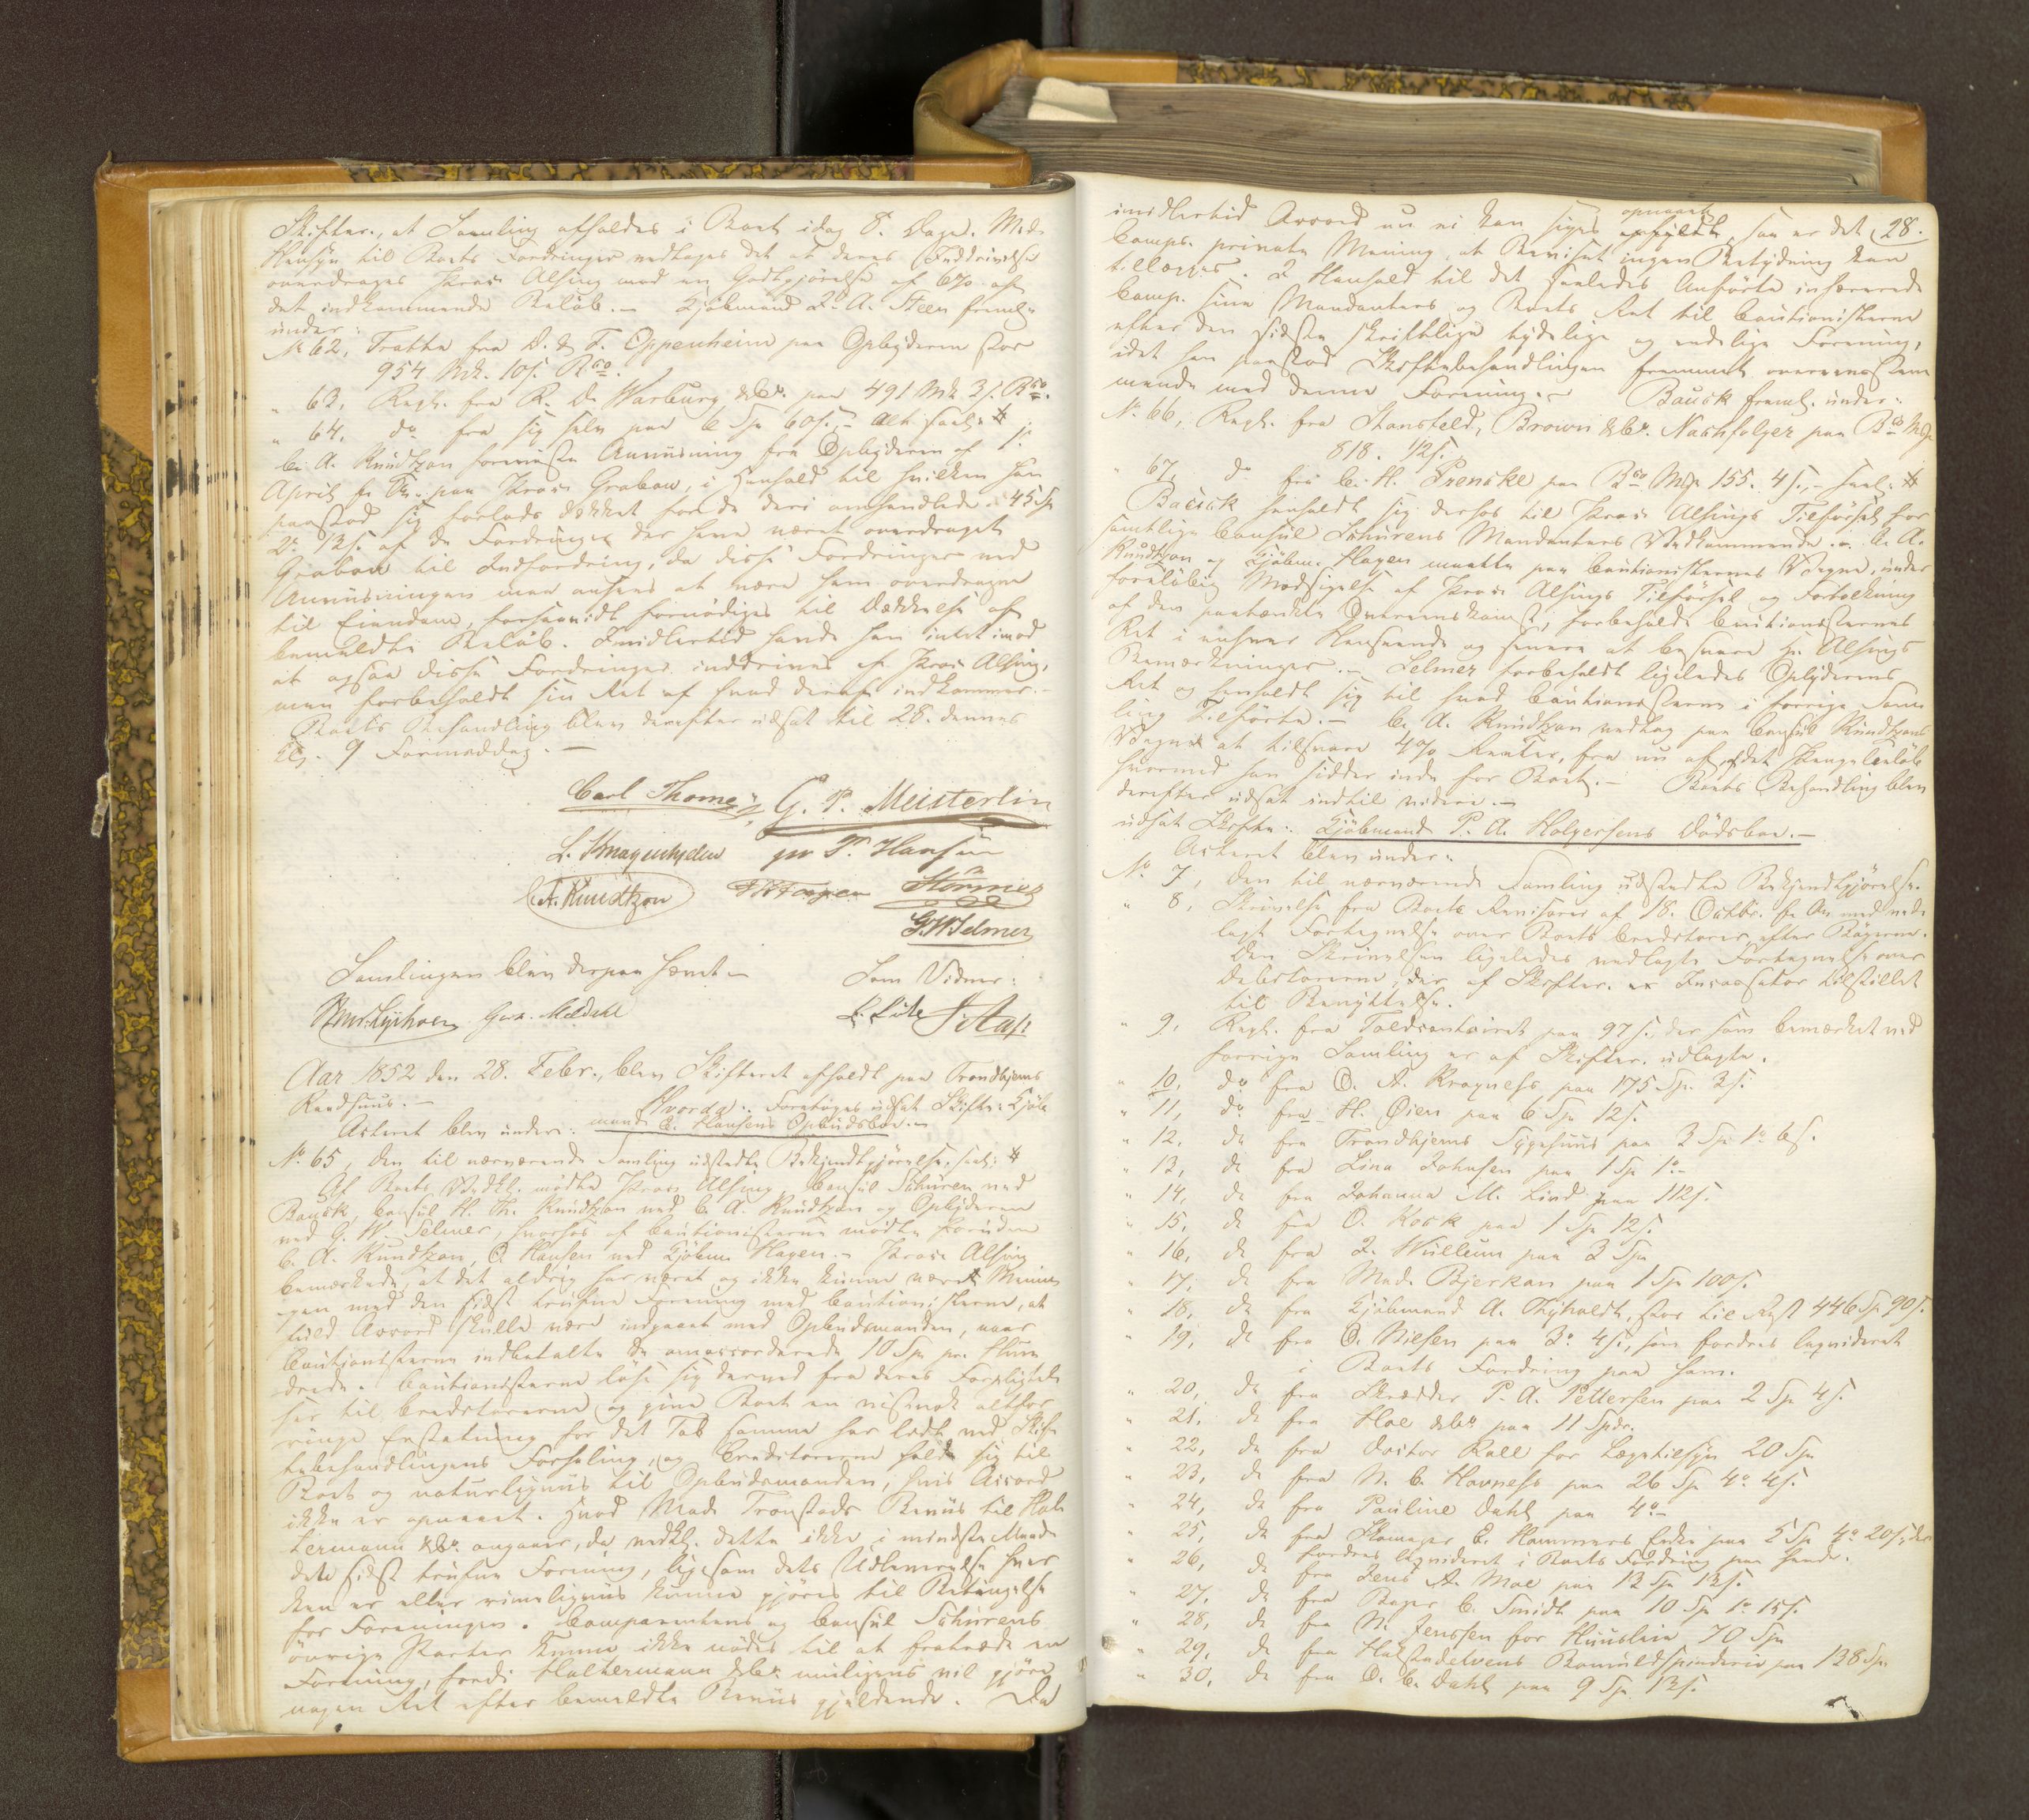 Skifter., at Samling afholdes i Boet idag 8. Dage. Med
Hensyn til Boets Fordringer vedtoges det at deres Inddrivelse
overdrages Proc: Alsing mod en Godtgjørelse af 6% af
det indkommende Beløb. – Kjøbmand A. Steen freml:
under:
No 62, Tratte fra D. & F. Oppenheim paa Opbyderen stor
954 Mk. 10 s. Bco.
" 63, Regl. fra R. D. Warburg & Co. paa 491 Mk 3 s. Bco.
" 64, do fra sig selv paa 6 Sp 60 s, – alt saal: #
C. A. Knudtzon foreviste Anviisning fra Opbyderen af 1.
April f. A. paa Proc: Grabow, i Henhold til hvilken han
paastod sig forlods dækket for de deri omhandlede 45 Sp
2 o 12 s. af de Fordringer der have været overdraget
Grabow til Indfordring, da disse Fordringer ved
Anviisningen maa ansees at være ham overdragne
til Eiendom, forsaavidt fornødiges til Dækkelse af
bemeldte Beløb. Imidlertid havde han intet imod
at ogsaa disse Fordringer inddrives af Proc: Alsing,
men forbeholdt sin Ret af hvad deraf indkommer. –
Boets Behandling blev derefter udsat til 28. dennes
Kl. 9 Formiddag. –
Carl Thome G. P. Meisterlin
L. Smagenhyden pr P. Hansen
C. A. Knudtzon F. Hagen Störmer
G. W. Selmer
Samlingen blev derpaa hævet – Som Vidner:
Lysholm Gun. Meldahl
Aar 1852 den 28. Febr., blev Skifteret afholdt paa Trondhjems
Raadhuus. – Hvorda: Foretoges udsat Skifte: Kjøb
mand C. Hansens Opbudsbo. –
Acteret blev under:
No 65, den til nærværende Samling udstedte Bekjendtgjørelse, saal: #
Af Boets Vedk. mødte Proc: Alsing, Consul Schüren ved
Bauck, Consul H. Th. Knudtzon ved C. A. Knudtzon og Opbyderen
ved G. W. Selmer, hvorhos af Cautionisterne mødte foruden
C. A. Knudtzon, O. Hansen ved Kjøbm. Hagen. – Proc: Alsing
bemærkede, at det aldrig har været og ikke kunne været Menin
gen med den sidst trufne Forening med Cautionisterne, at
fuld Accord skulle være indgaaet med Opbudsmanden, naar
Cautionisterne indbetalte de omaccorderede 10 Sp pr. Hun
drede. Cautionisterne løse sig derved fra deres Forpligtel
ser til Creditorerne og give Boet en vistnok altfor
ringe Erstatning for det Tab samme har lidt ved Skif
tebehandlingens Forhaling, og Creditorerne holde sig til
Boet og naturligviis til Opbudsmanden, hvis Accord
ikke er opnaaet. Hvad Mad. Tronstads Beviis til Hal
termann & Co. angaaer, da vedk. dette ikke i mindste Maade
dete sidst trufne Forening, ligesom dets Udleverelse hver
ken er eller rimeligviis kunne gjøres til Betingelse
for Foreningen. Comparentens og Consul Schürens
øvrige Parter kunne ikke nødes til at fratræde en
Forening, fordi Haltermann & Co. muligens vil gjøre
nogen Ret efter bemeldte Beviis gjeldende. Da
28.
imidlertid Accord nu ei kan siges opnaaet opfyldt, saa er det
Comps. private Mening, at Beviset ingen Betydning kan
tillægges. I Henhold til det saaledes Anførte inhærerede
Comp. sine Mandanters og Boets Ret til Cautionisterne
efter den sidste skriftlige tydelige og endelige Forening,
idet han paastod Skiftebehandlingen fremmet overeenstem
mende med denne Forening. – Bauck freml. under:
No 66, Regl. fra Stansfeld, Brown & Co. Nachfolger paa Bco Mk
818. 12 s.
" 67 do fra C. H. Prenske paa Bco Mk 155. 4 s, – saal: #
Bauck henholdt sig derhos til Proc: Alsings Tilførsel for
samtlige Consul Schürens Mandanters Vedkommende. – C. A.
Knudtzon og Kjøbm. Hagen maatte paa Cautionisternes Vegne, under
foreløbig Modsigelse af Proc: Alsings Tilførsel og Fortolkning
af den paatænkte Overeenskomst, forbeholde Cautionisternes
Ret i enhver Henseende og senere at besvare Hr. Alsings
Bemærkninger. – Selmer forbeholdt ligeledes Opbyderens
Ret og henholdt sig til hvad Cautionisterne i forrige Sam
ling Tilførte. – C. A. Knudtzon vedtog paa Consul Knudtzons
Vegne at tilsvare 4% Renter, fra nu af, af det Pengebeløb
hvormed han sidder inde for Boet. – Boets Behandling blev
derefter udsat indtil videre. –
udsat Skifte: Kjøbmand P. A. Holgersens Dødsboe. –
Acteret blev under:
No 7, den til nærværende Samling udstedte Bekjendtgjørelse.
" 8, Skrivelse fra Boets Revisorer af 18. Octbr. f. A. med ved
lagt Fortegnelse over Boets Creditorer, efter Bøgerne.
Den Skrivelsen ligeledes vedlagte Fortegnelse over
Debitorerne, der af Skifter. er Incassator tilstillet
til Benyttelse.
" 9, Regl. fra Toldcontoiret paa 97 s, der som bemærket ved
forrige Samling er af Skifter. udlagte.
" 10, do fra O. A. Krogness paa 175 Sp. 3 s.
" 11, do fra H. Øien paa 6 Sp 12 s.
" 12, do fra Trondhjems Sygehuus paa 3 Sp 1 o 6 s.
" 13, do fra Lina Johnsen paa 1 Sp 1 o –
" 14, do fra Johanna M. Lind paa 112 s.
" 15, do fra O. Kock paa 1 Sp 12 s.
" 16, do fra J. Wullum paa 3 Sp
" 17, do fra Mad. Bjerkan paa 1 Sp 100 s.
" 18, do fra Kjøbmand A. Thyholdt, stor til Rest 446 Sp 90 s.
" 19, do fra O. Nielsen paa 3 o 4 s, som fordres liqvideret
i Boets Fordring paa ham.
" 20, do fra Skrædder P. A. Pettersen paa 2 Sp 4 s.
" 21, do fra Hoe & Co. paa 11 Spdr.
" 22, do fra Doctor Roll for Lægetilsyn 20 Sp
" 23, do fra N. C. Hovness paa 26 Sp 4 o 4 s.
" 24, do fra Pauline Dahl paa 4 o –
" 25, do fra Skomager C. Hammers Enke paa 5 Sp 4 o 20 s, der
fordres liqvideret i Boets Fordring paa hende.
" 26, do fra Jens A. Moe paa 12 Sp 12 s.
" 27, do fra Bager C. Smidt paa 10 Sp 1 o 15 s.
" 28, do fra N. Jenssen for Huusleie 70 Sp
" 29, do fra Halstadelvens Bomuldsspinderie paa 138 Sp.
" 30, do fra O. C. Dahl paa 9 Sp 12 s.